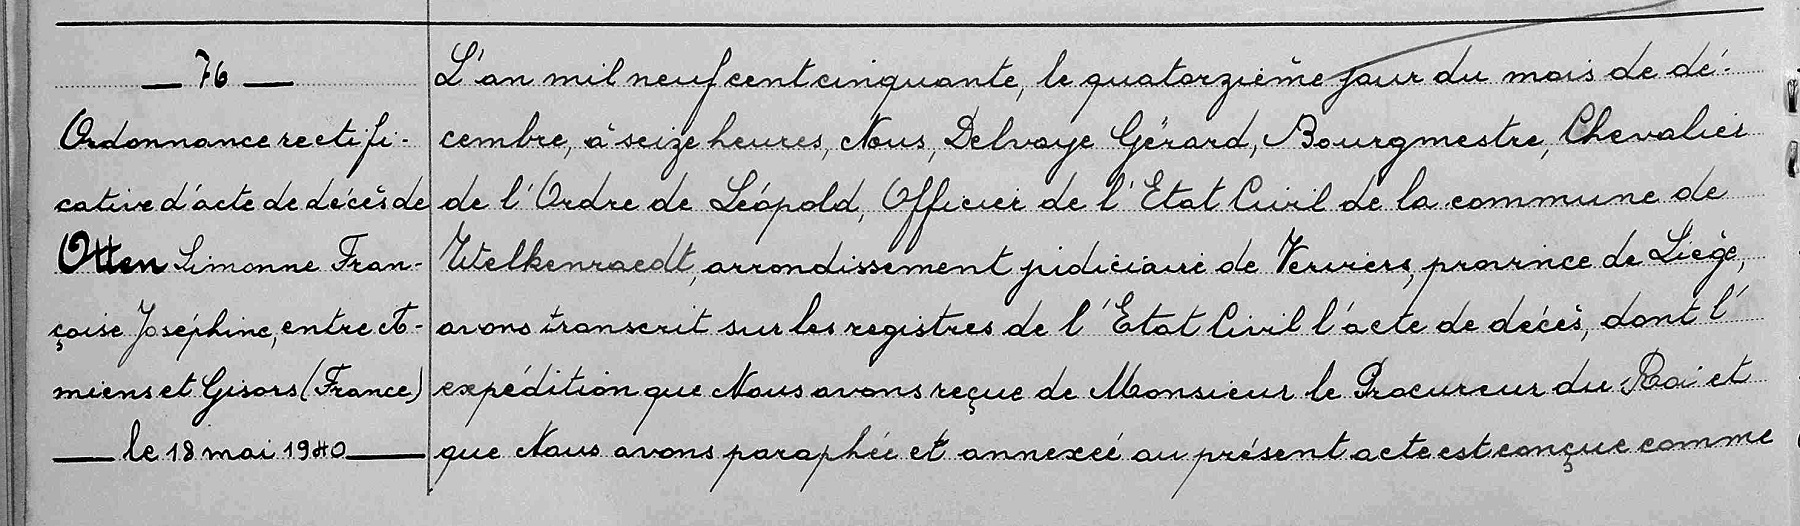 — 76 —
Ordonnance rectifi-
cative d'acte de décès de
Otten Simonne Fran-
çoise Joséphine, entre A-
miens et Gisors (France)
— le 18 mai 1940 —
L'an mil neuf cent cinquante, le quatorzième jour du mois de dé-
cembre, à seize heures, Nous, Delvoye Gérard, Bourgmestre, Chevalier
de l'Ordre de Léopold, Officier de l'Etat Civil de la commune de
Welkenraedt, arrondissement judiciaire de Verviers, province de Liège,
avons transcrit sur les registres de l'Etat Civil l'acte de décès, dont l'
expédition que Nous avons reçue de Monsieur le Procureur du Roi et
que Nous avons paraphée et annexée au présent acte est conçue comme